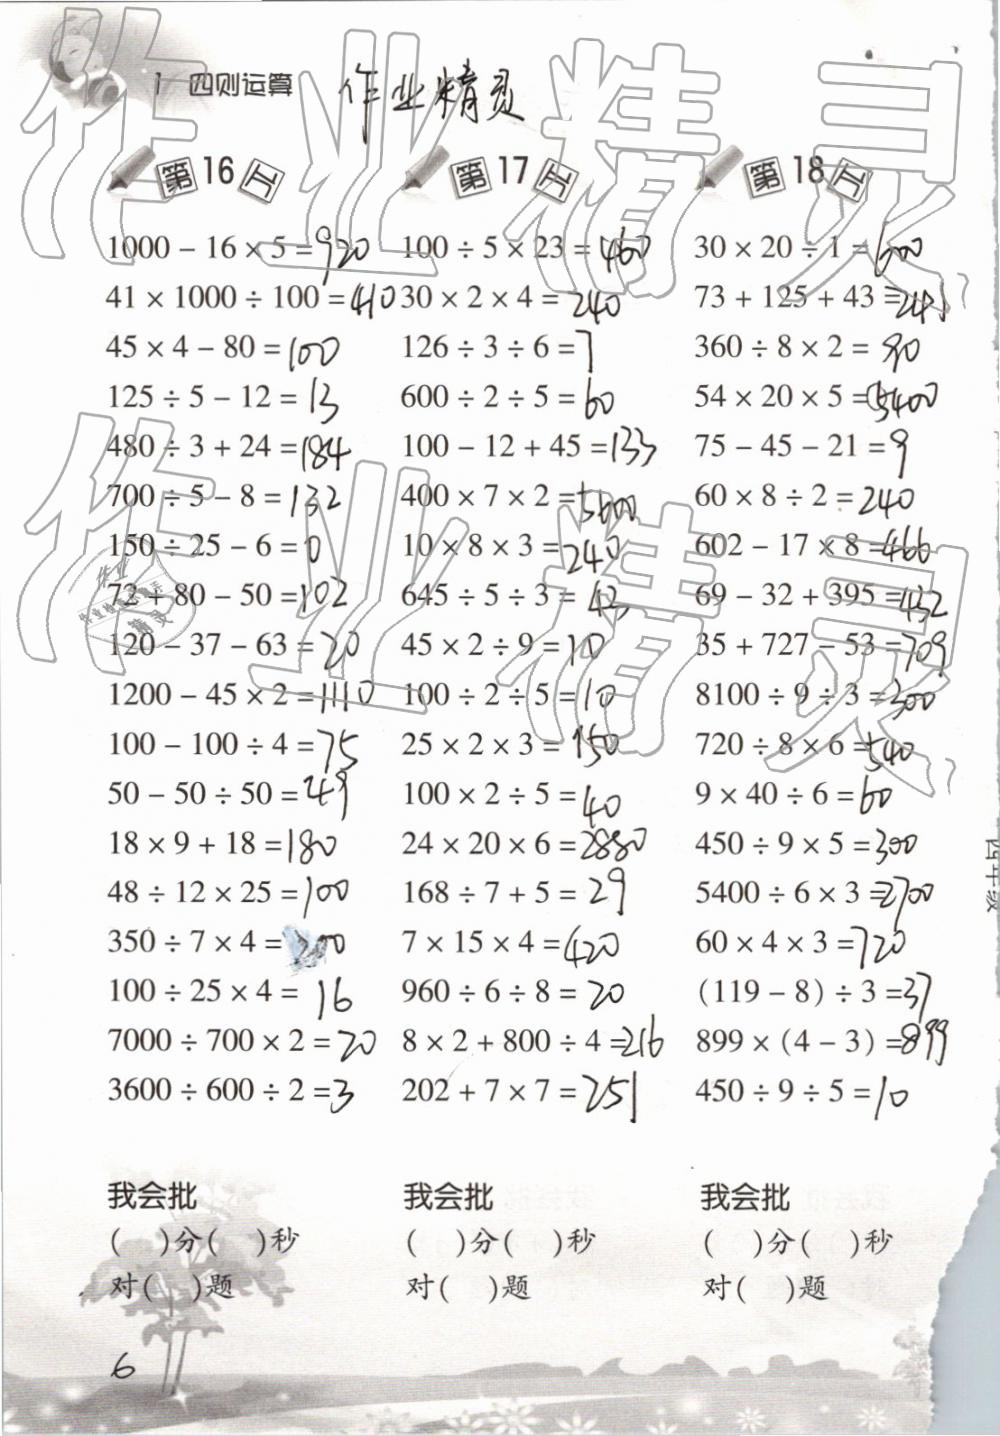 1 四则运算 作业精灵
第16片
1000 − 16 × 5 = 920
41 × 1000 ÷ 100 = 410
45 × 4 − 80 = 100
125 ÷ 5 − 12 = 13
480 ÷ 3 + 24 = 184
700 ÷ 5 − 8 = 132
150 ÷ 25 − 6 = 0
72 + 80 − 50 = 102
120 − 37 − 63 = 20
1200 − 45 × 2 = 1110
100 − 100 ÷ 4 = 75
50 − 50 ÷ 50 = 49
18 × 9 + 18 = 180
48 ÷ 12 × 25 = 100
350 ÷ 7 × 4 = 200
100 ÷ 25 × 4 = 16
7000 ÷ 700 × 2 = 20
3600 ÷ 600 ÷ 2 = 3
我会批
( )分( )秒
对( )题
第17片
100 ÷ 5 × 23 = 460
30 × 2 × 4 = 240
126 ÷ 3 ÷ 6 = 7
600 ÷ 2 ÷ 5 = 60
100 − 12 + 45 = 133
400 × 7 × 2 = 5600
10 × 8 × 3 = 240
645 ÷ 5 ÷ 3 = 43
45 × 2 ÷ 9 = 10
100 ÷ 2 ÷ 5 = 10
25 × 2 × 3 = 150
100 × 2 ÷ 5 = 40
24 × 20 × 6 = 2880
168 ÷ 7 + 5 = 29
7 × 15 × 4 = 420
960 ÷ 6 ÷ 8 = 20
8 × 2 + 800 ÷ 4 = 216
202 + 7 × 7 = 251
我会批
( )分( )秒
对( )题
第18片
30 × 20 ÷ 1 = 600
73 + 125 + 43 = 241
360 ÷ 8 × 2 = 90
54 × 20 × 5 = 5400
75 − 45 − 21 = 9
60 × 8 ÷ 2 = 240
602 − 17 × 8 = 466
69 − 32 + 395 = 432
35 + 727 − 53 = 709
8100 ÷ 9 ÷ 3 = 300
720 ÷ 8 × 6 = 540
9 × 40 ÷ 6 = 60
450 ÷ 9 × 5 = 300
5400 ÷ 6 × 3 = 2700
60 × 4 × 3 = 720
(119 − 8) ÷ 3 = 37
899 × (4 − 3) = 899
450 ÷ 9 ÷ 5 = 10
我会批
( )分( )秒
对( )题
四年级
6
作业精灵
作业精灵